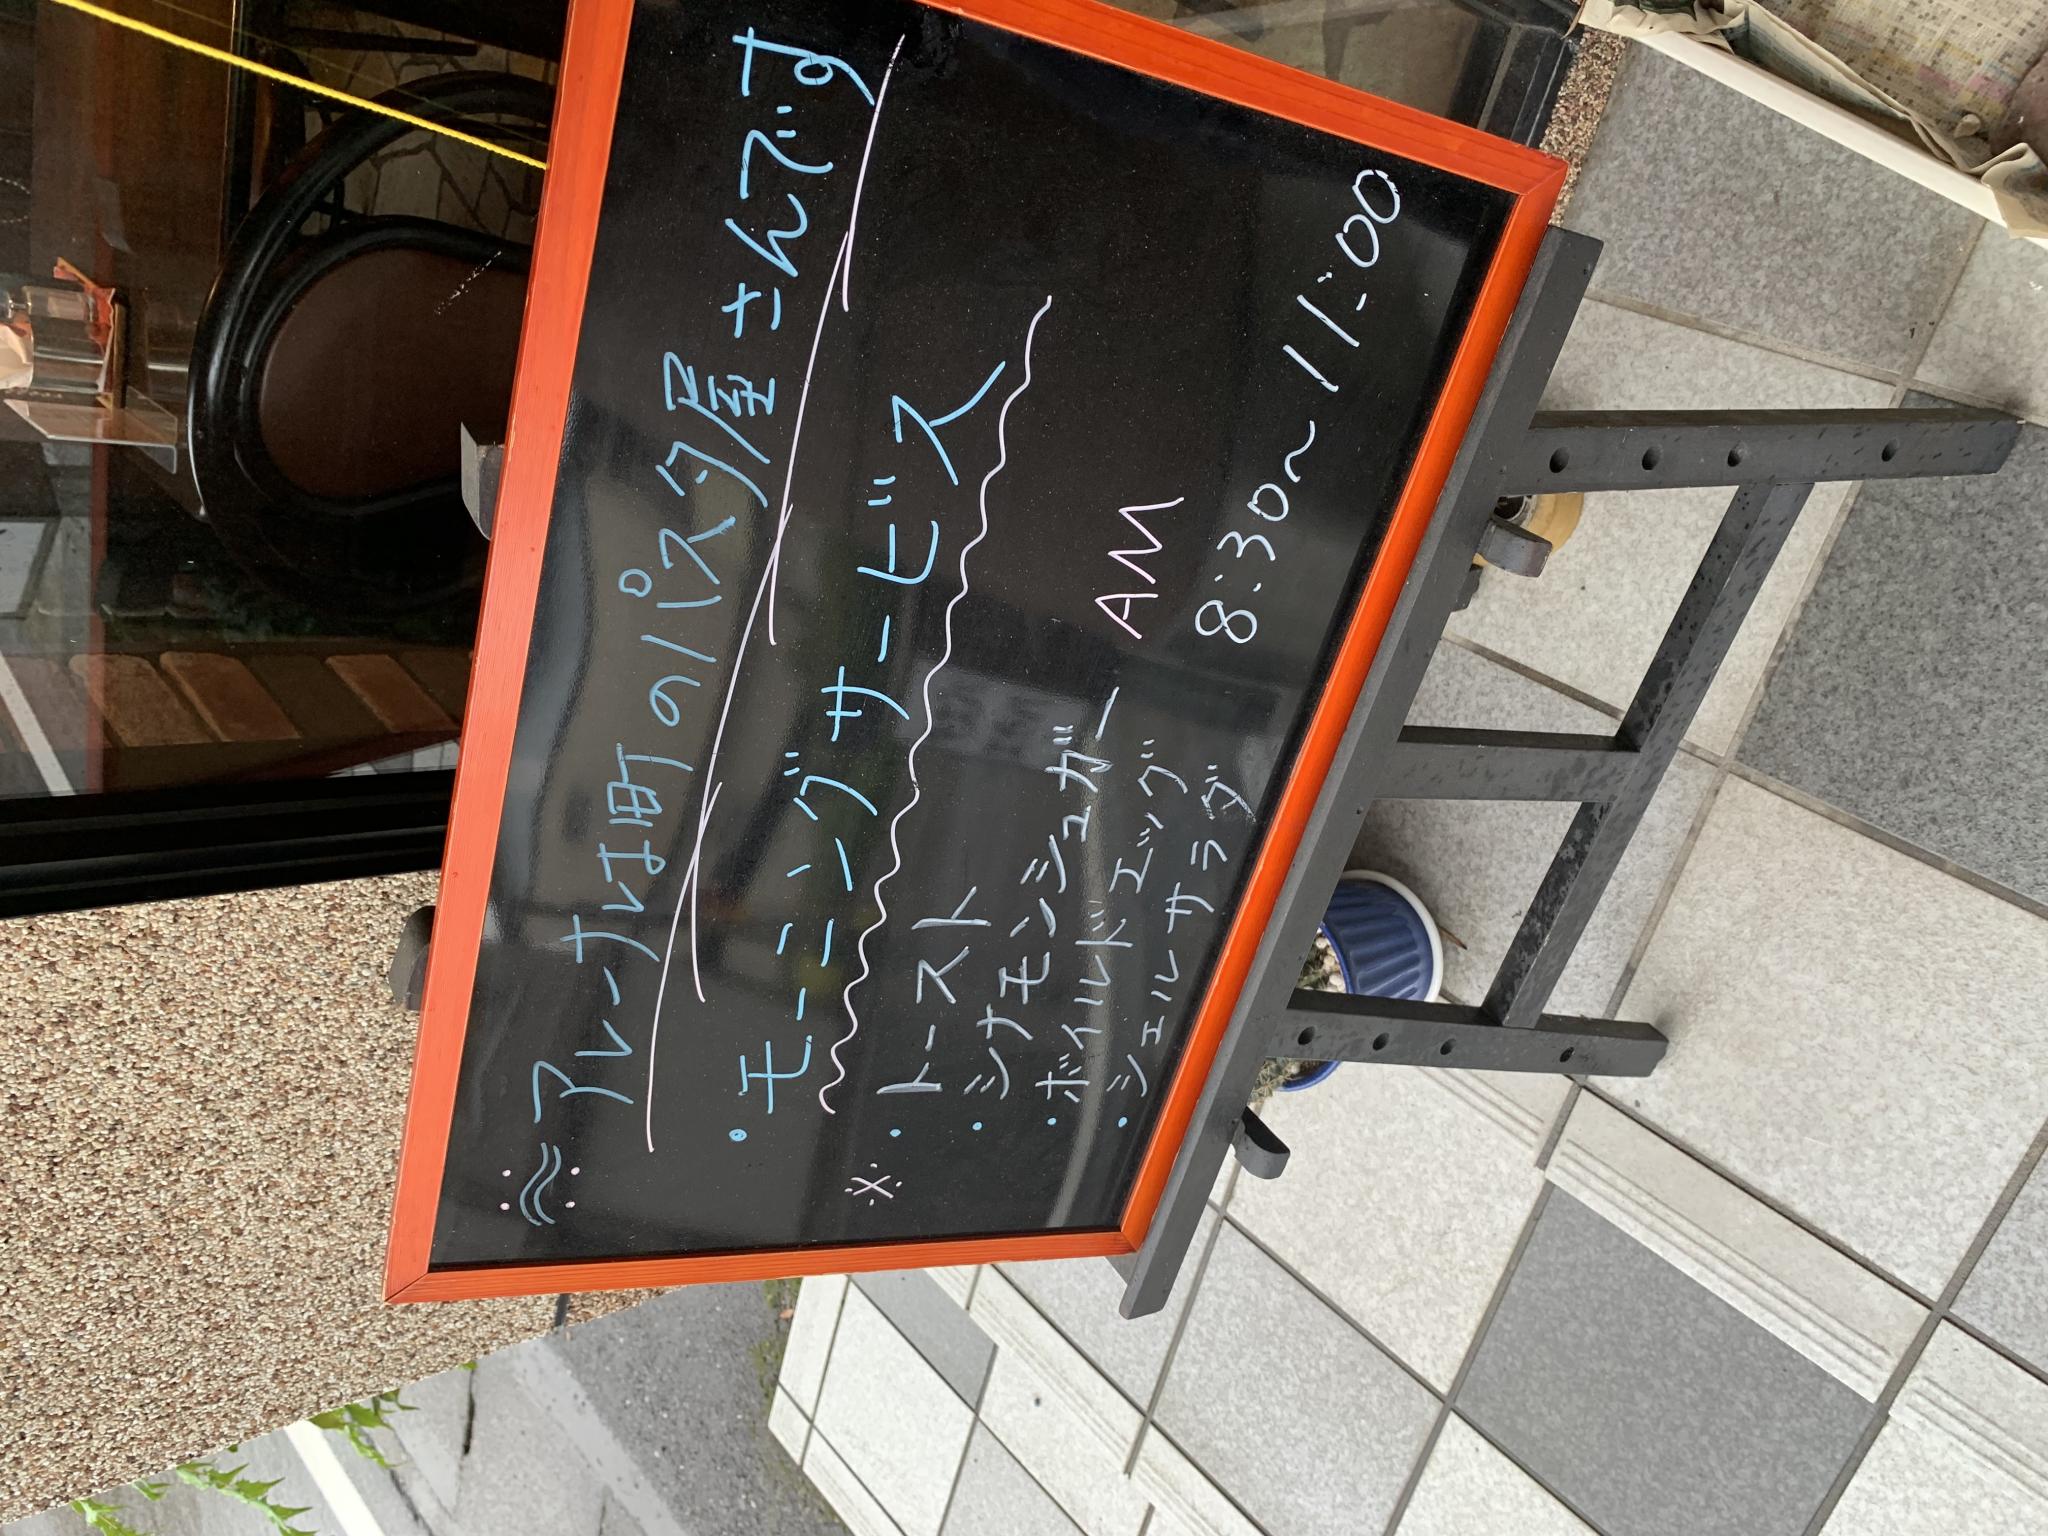 アレーナは町のパスタ屋さんです
・モーニングサービス
※ ・トースト
・シナモンシュガー
・ボイルドエッグ
・シェルサラダ
AM
8:30〜11:00